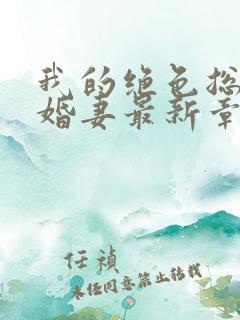 我的绝色总
婚妻最新章
任祯
未经同意禁止转载